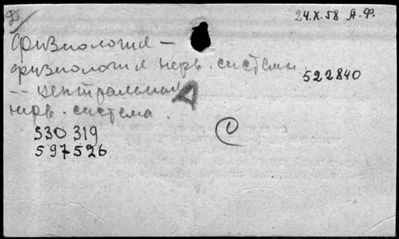 24.X.58 А.Ф.
Физиология –
физиология нерв. системы
522840
-- центральная
нерв. система.
530 319
597526